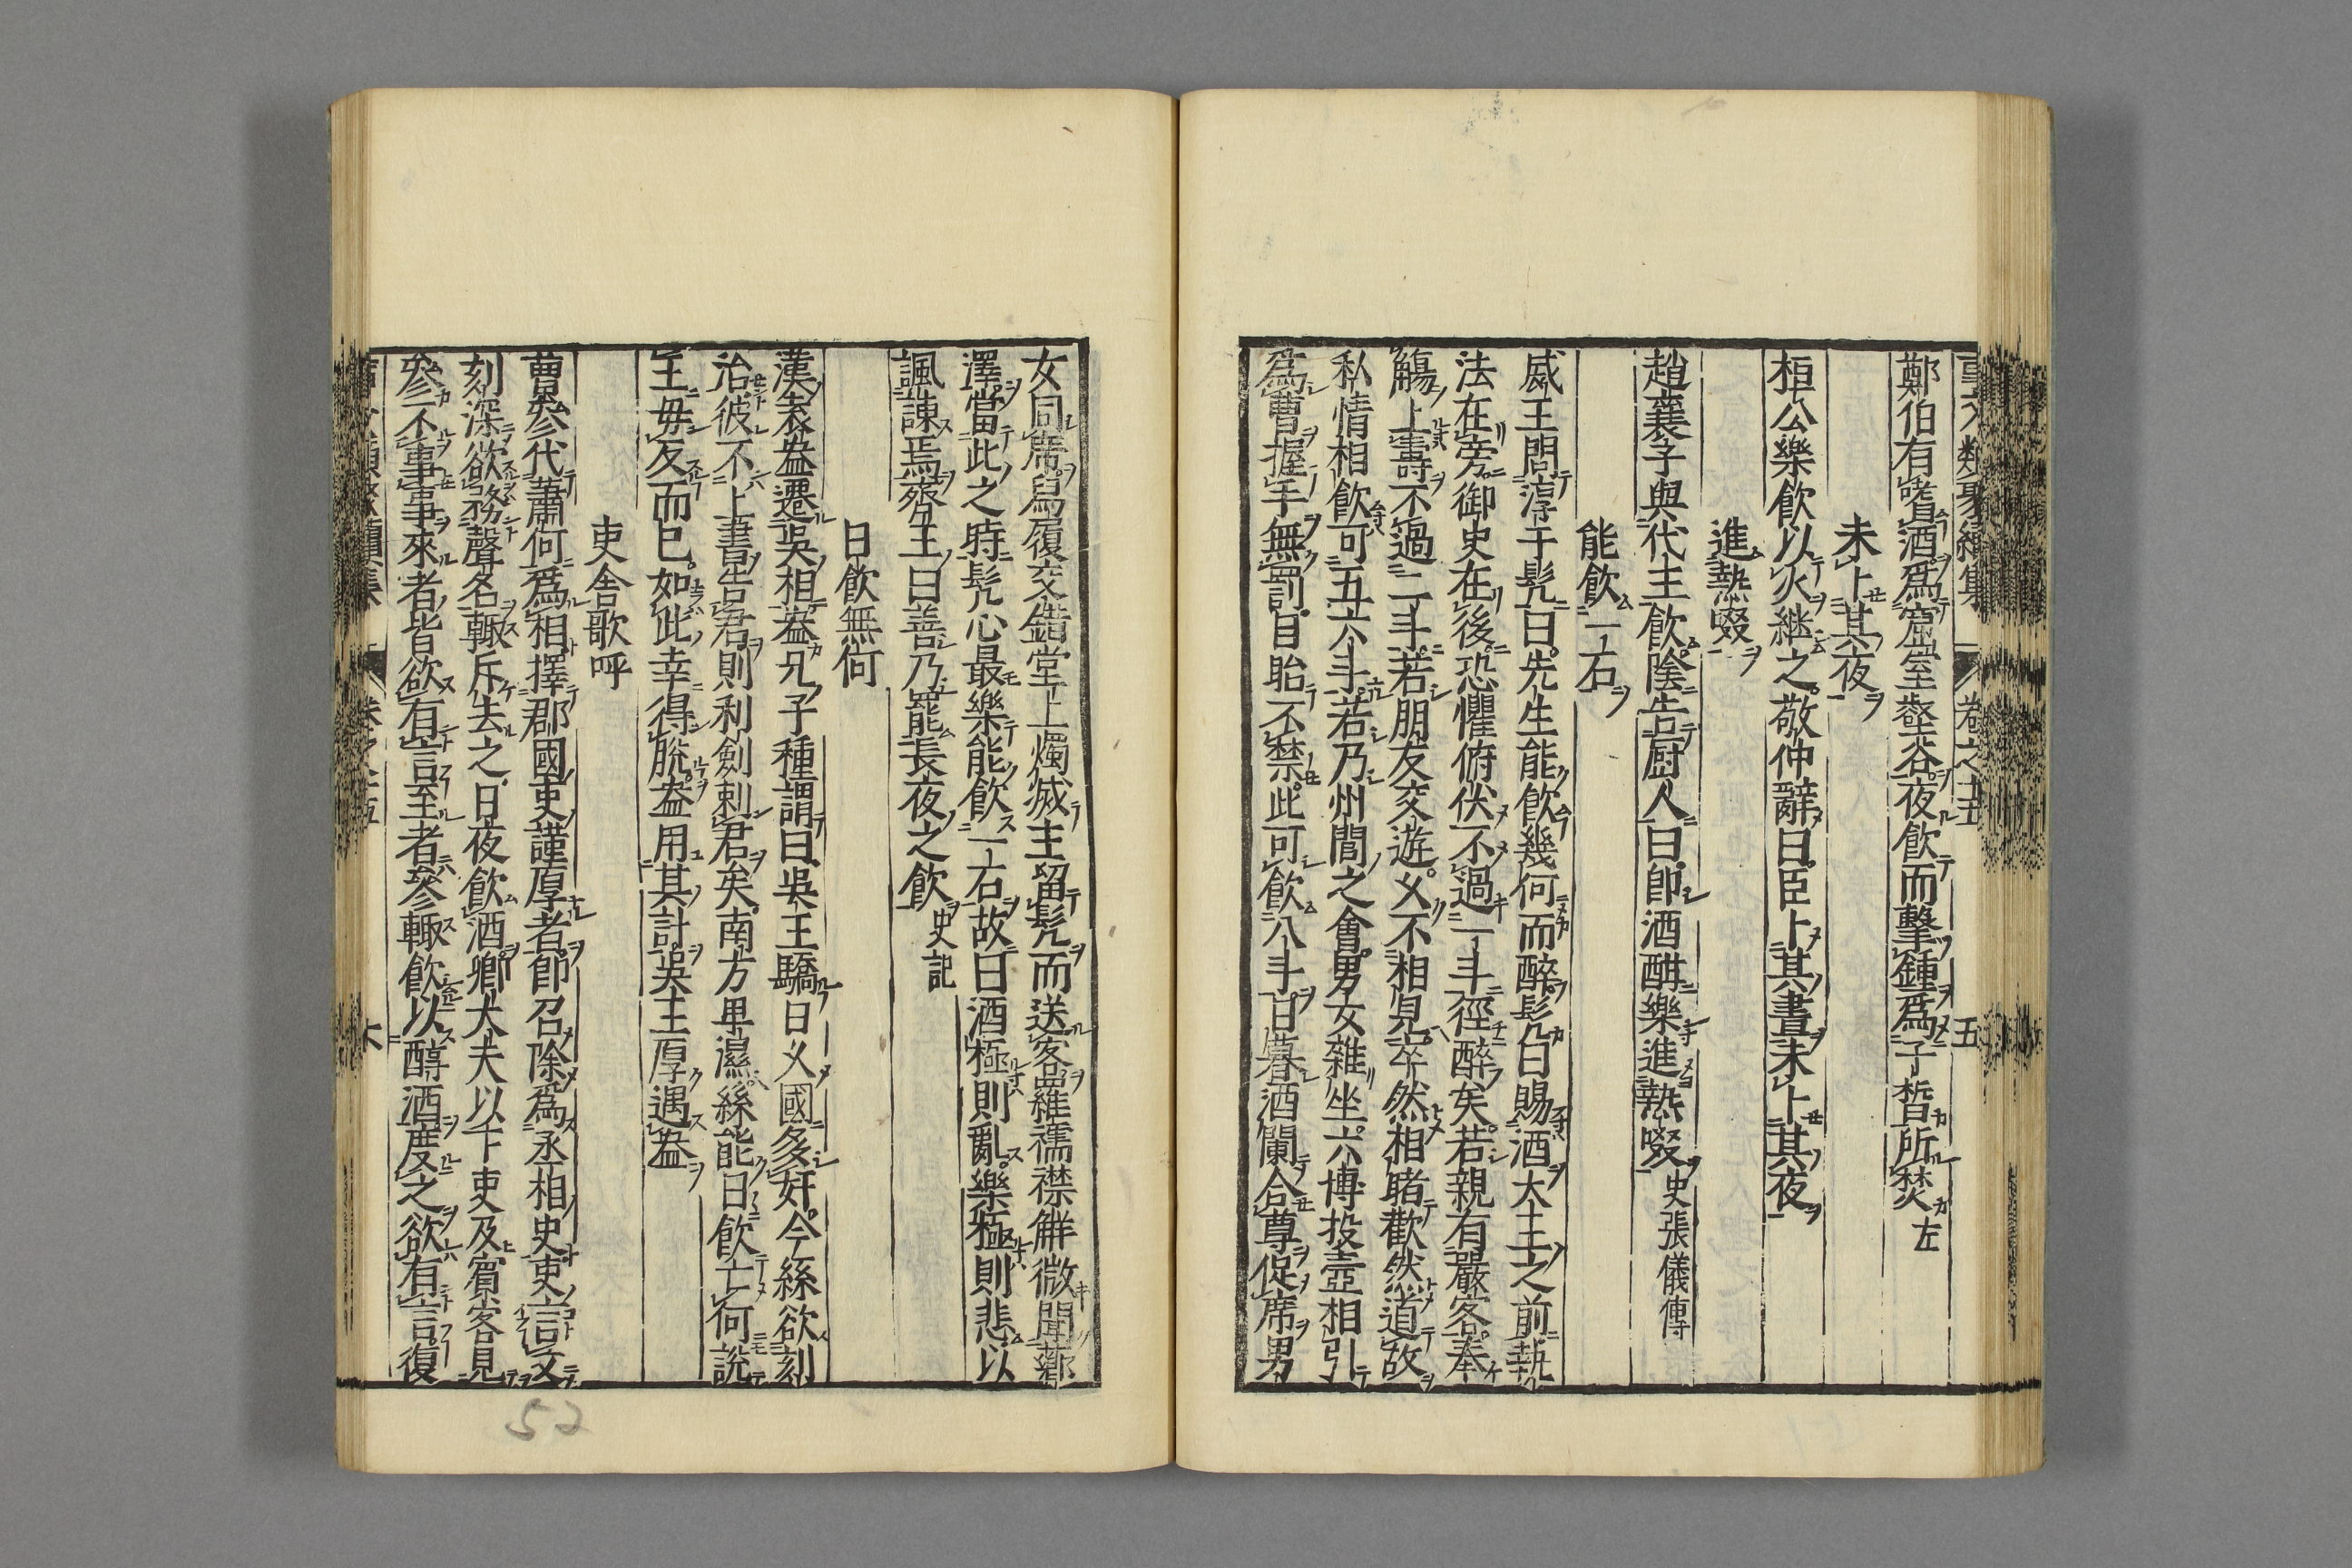 事文類聚續集 卷之十五 五
鄭伯有嗜酒爲窟室壑谷夜飲而擊鍾爲子皙所焚左
未卜其夜
桓公樂飲以火継之敬仲辭曰臣卜其晝未卜其夜
進熱啜
趙襄子與代主飲陰告厨人曰卽酒酣樂進熱啜史張儀傳
能飲一石
威王問淳于髡曰先生能飲幾何而醉髡曰賜酒大王之前執
法在旁御史在後恐懼俯伏不過一斗徑醉矣若親有嚴客奉
觴上壽不過二斗若朋友交遊乂不相見卒然相睹歡然道故
私情相飲可五六斗若乃州閭之會男女雜坐六博投壺相引
爲曹握手無罰目眙不禁此可飲八斗日暮酒闌合尊促席男
女同席舄履交錯堂上燭滅主留髡而送客羅襦襟觧微聞薌
澤當此之時髡心最樂能飲一石故曰酒極則亂樂極則悲以
諷諫焉齊王曰善乃罷長夜之飲史記
日飲無何
漢袁盎遷吳相盎兄子種謂曰吳王驕日乂國多奸今絲欲刻
治彼不上書告君則利劍刺君矣南方卑濕絲能日飲亡何說
王毋反而已如此幸得脫盎用其計吳王厚遇盎
吏舍歌呼
曹參代蕭何爲相擇郡國吏謹厚者卽召除爲丞相史吏言文
刻深欲務聲名輙斥去之日夜飲酒卿大夫以下吏及賓客見
參不事事來者皆欲有言至者參輙飲以醇酒度之欲有言復